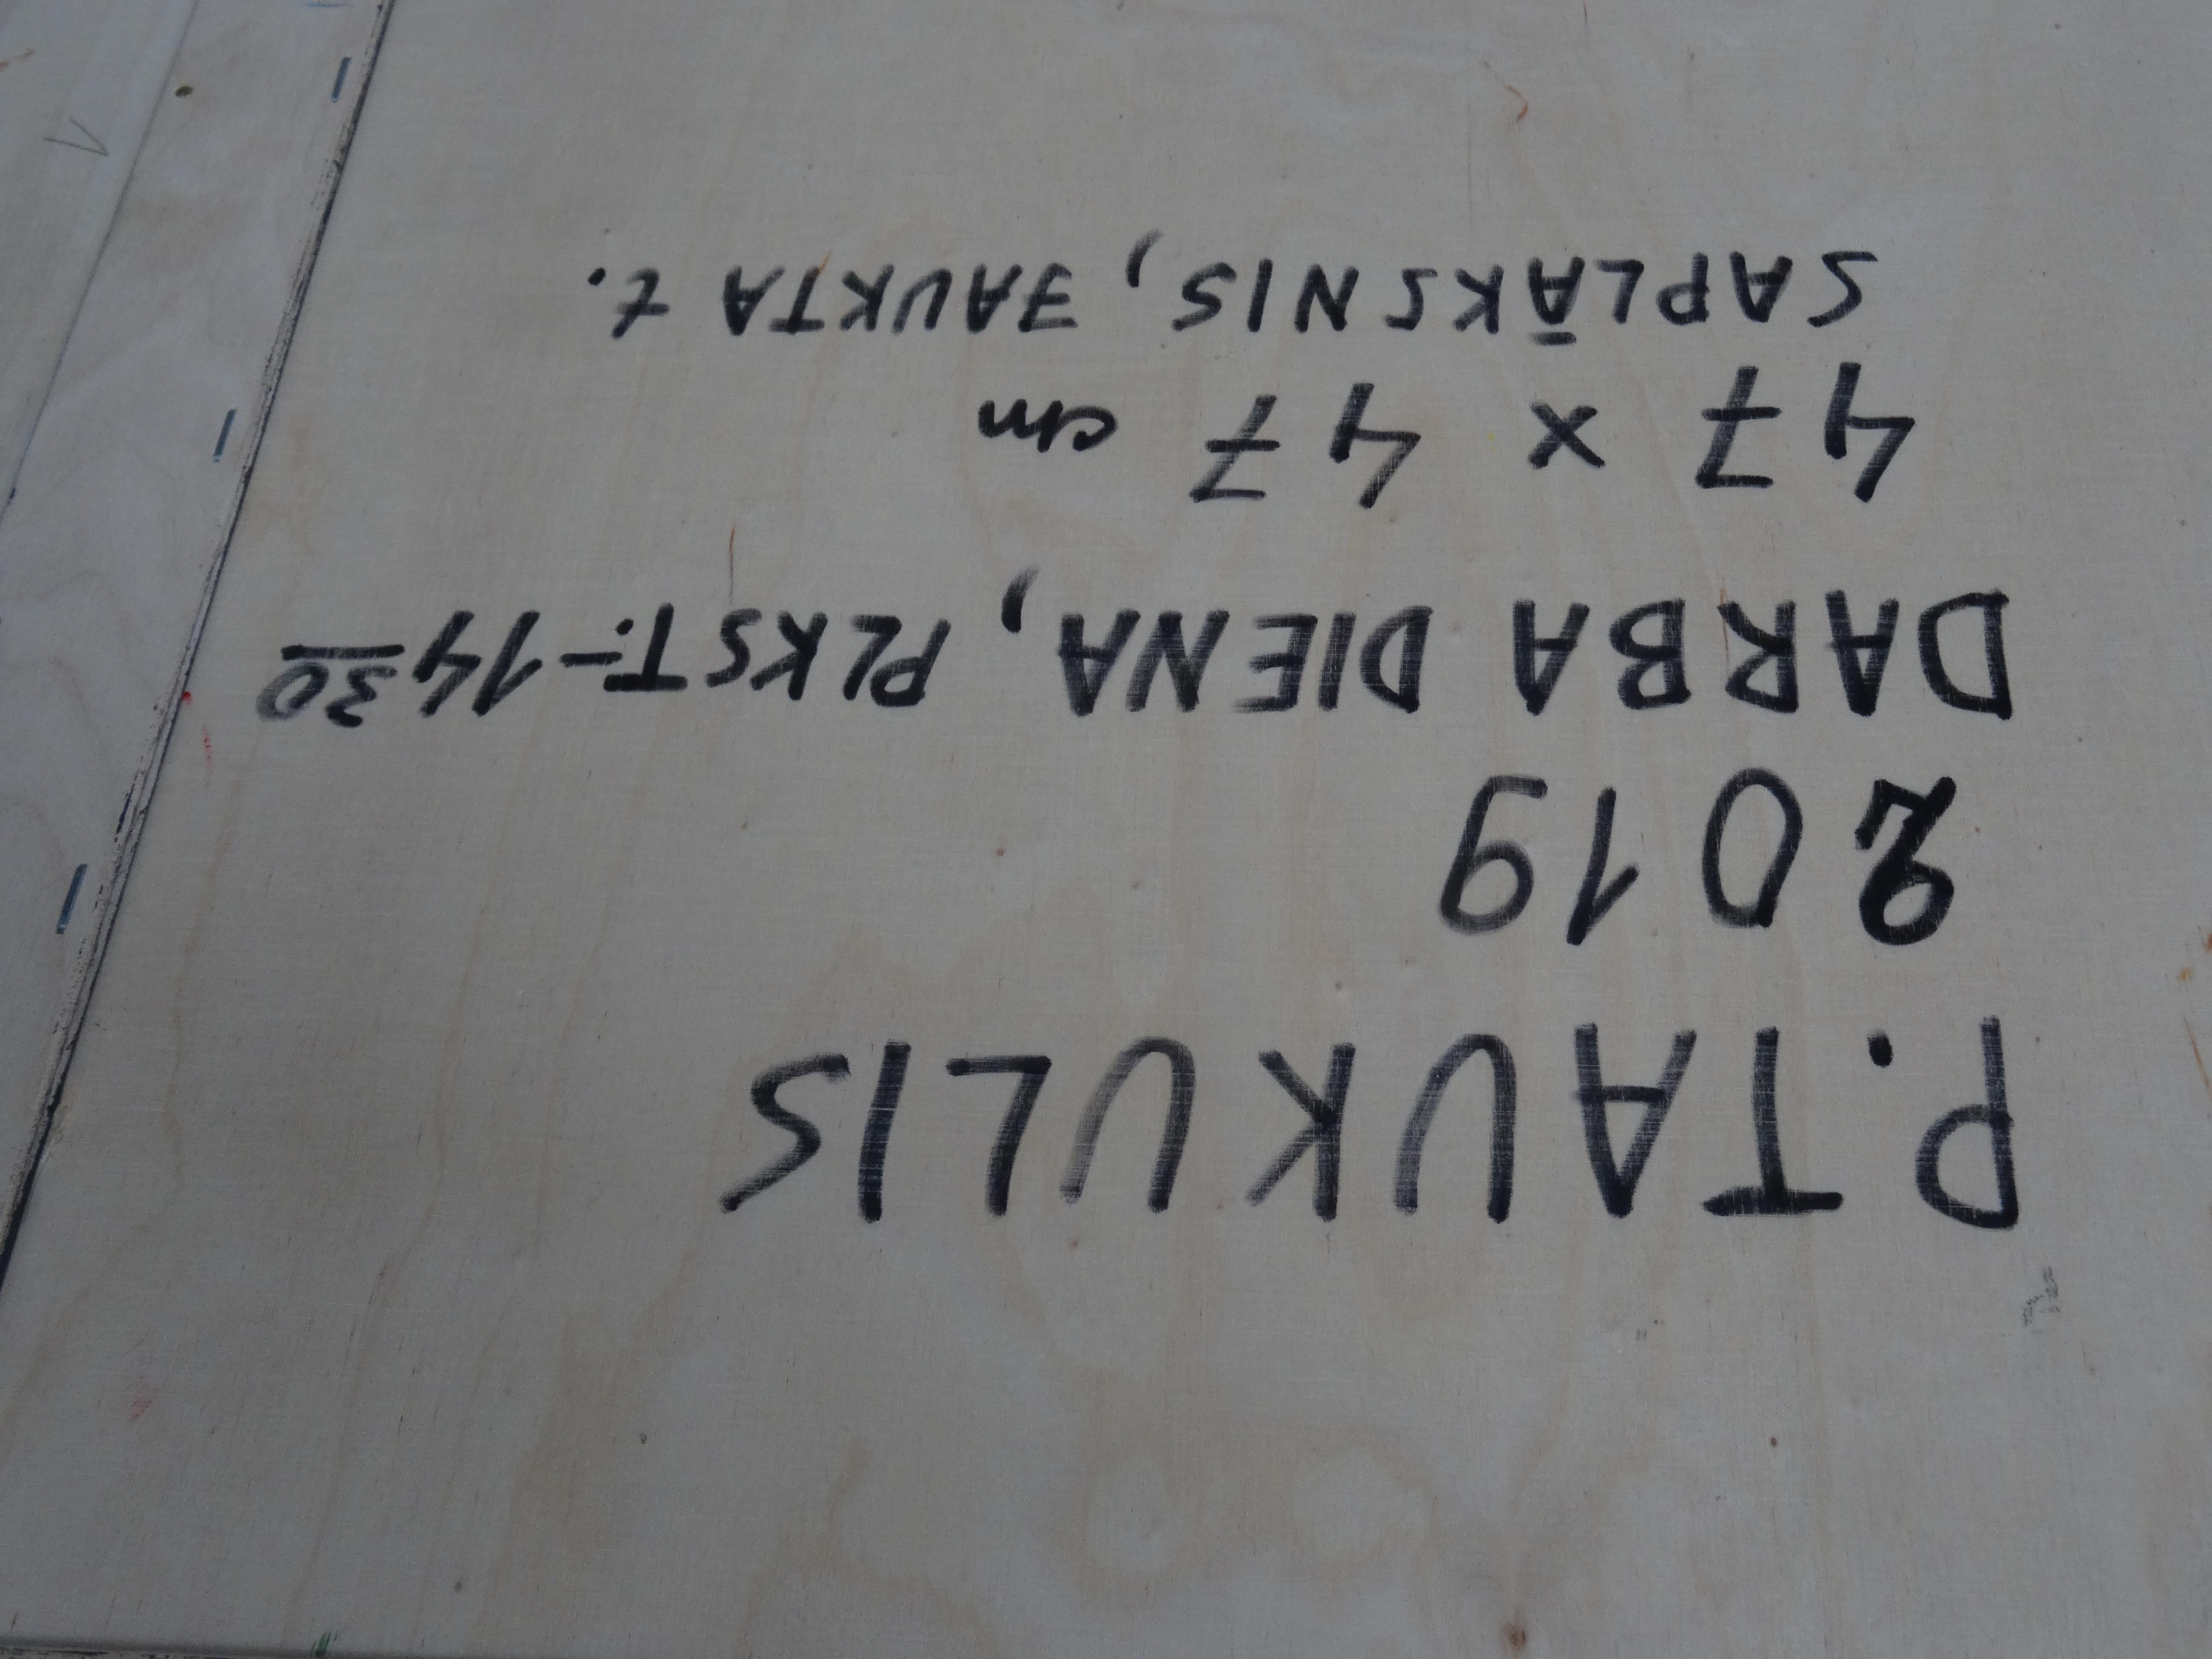 P. TAUKULIS
2019
DARBA DIENA, PLKST.-14 30
47 x 47 cm
SAPLĀKSNIS, JAUKTA t.